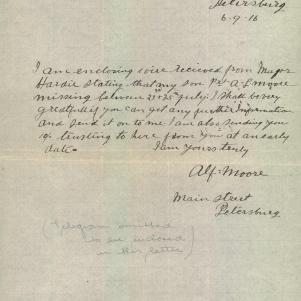 Petersburg
6-9-16
I am enclosing wire received from Major
Hardie stating that my son Pte A. L. Moore
missing between 21st 25th July. I shall be very
greatfull if you can get any further Information
and send it on to me I am also sending you
trusting to here from you at an early
date
I am yours truly
Alf. Moore
Main street
Petersburg
(Telegram
enclosed
in this letter)